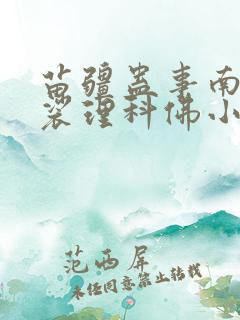 苗疆蛊事南
裟理科佛小
范西屏
未经同意禁止转载